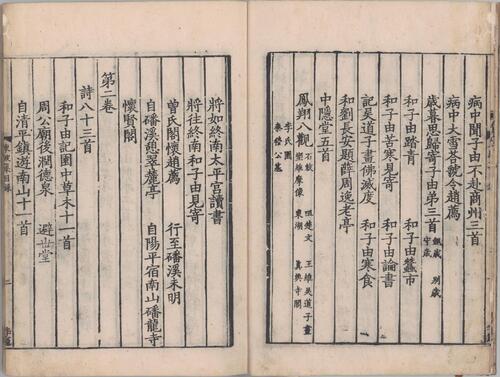 病中聞子由不赴商州三首
病中大雪答虢令趙薦
歲暮思歸寄子由弟三首 饋歲 別歲 守歲
和子由踏青 和子由蠶市
和子由苦寒見寄 和子由論書
記吳道子畫佛滅度 和子由寒食
和劉長安題薛周逸老亭
中隱堂五首
鳳翔八觀 石鼓 詛楚文 王維吳道子畫 維摩像 東湖 真興寺閣
李氏園 秦穆公墓
將如終南太平宮讀書
將往終南和子由見寄
曾氏閣懷趙薦 行至磻溪未明
自磻溪憩翠麓亭 自陽平宿南山蟠龍寺
懷賢閣
第二卷
詩八十三首
和子由記園中草木十一首
周公廟後潤德泉 避世堂
自清平鎮遊南山十一首